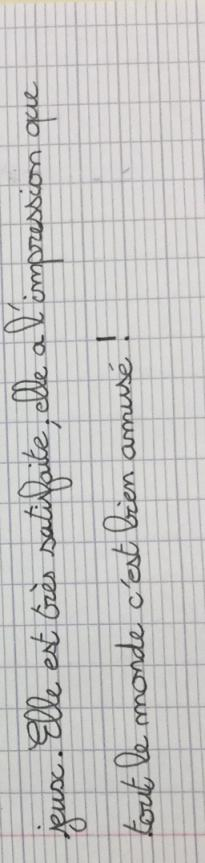 jeux. Elle est très satisfaite, elle a l'impression que
tout le monde c'est bien amusé !